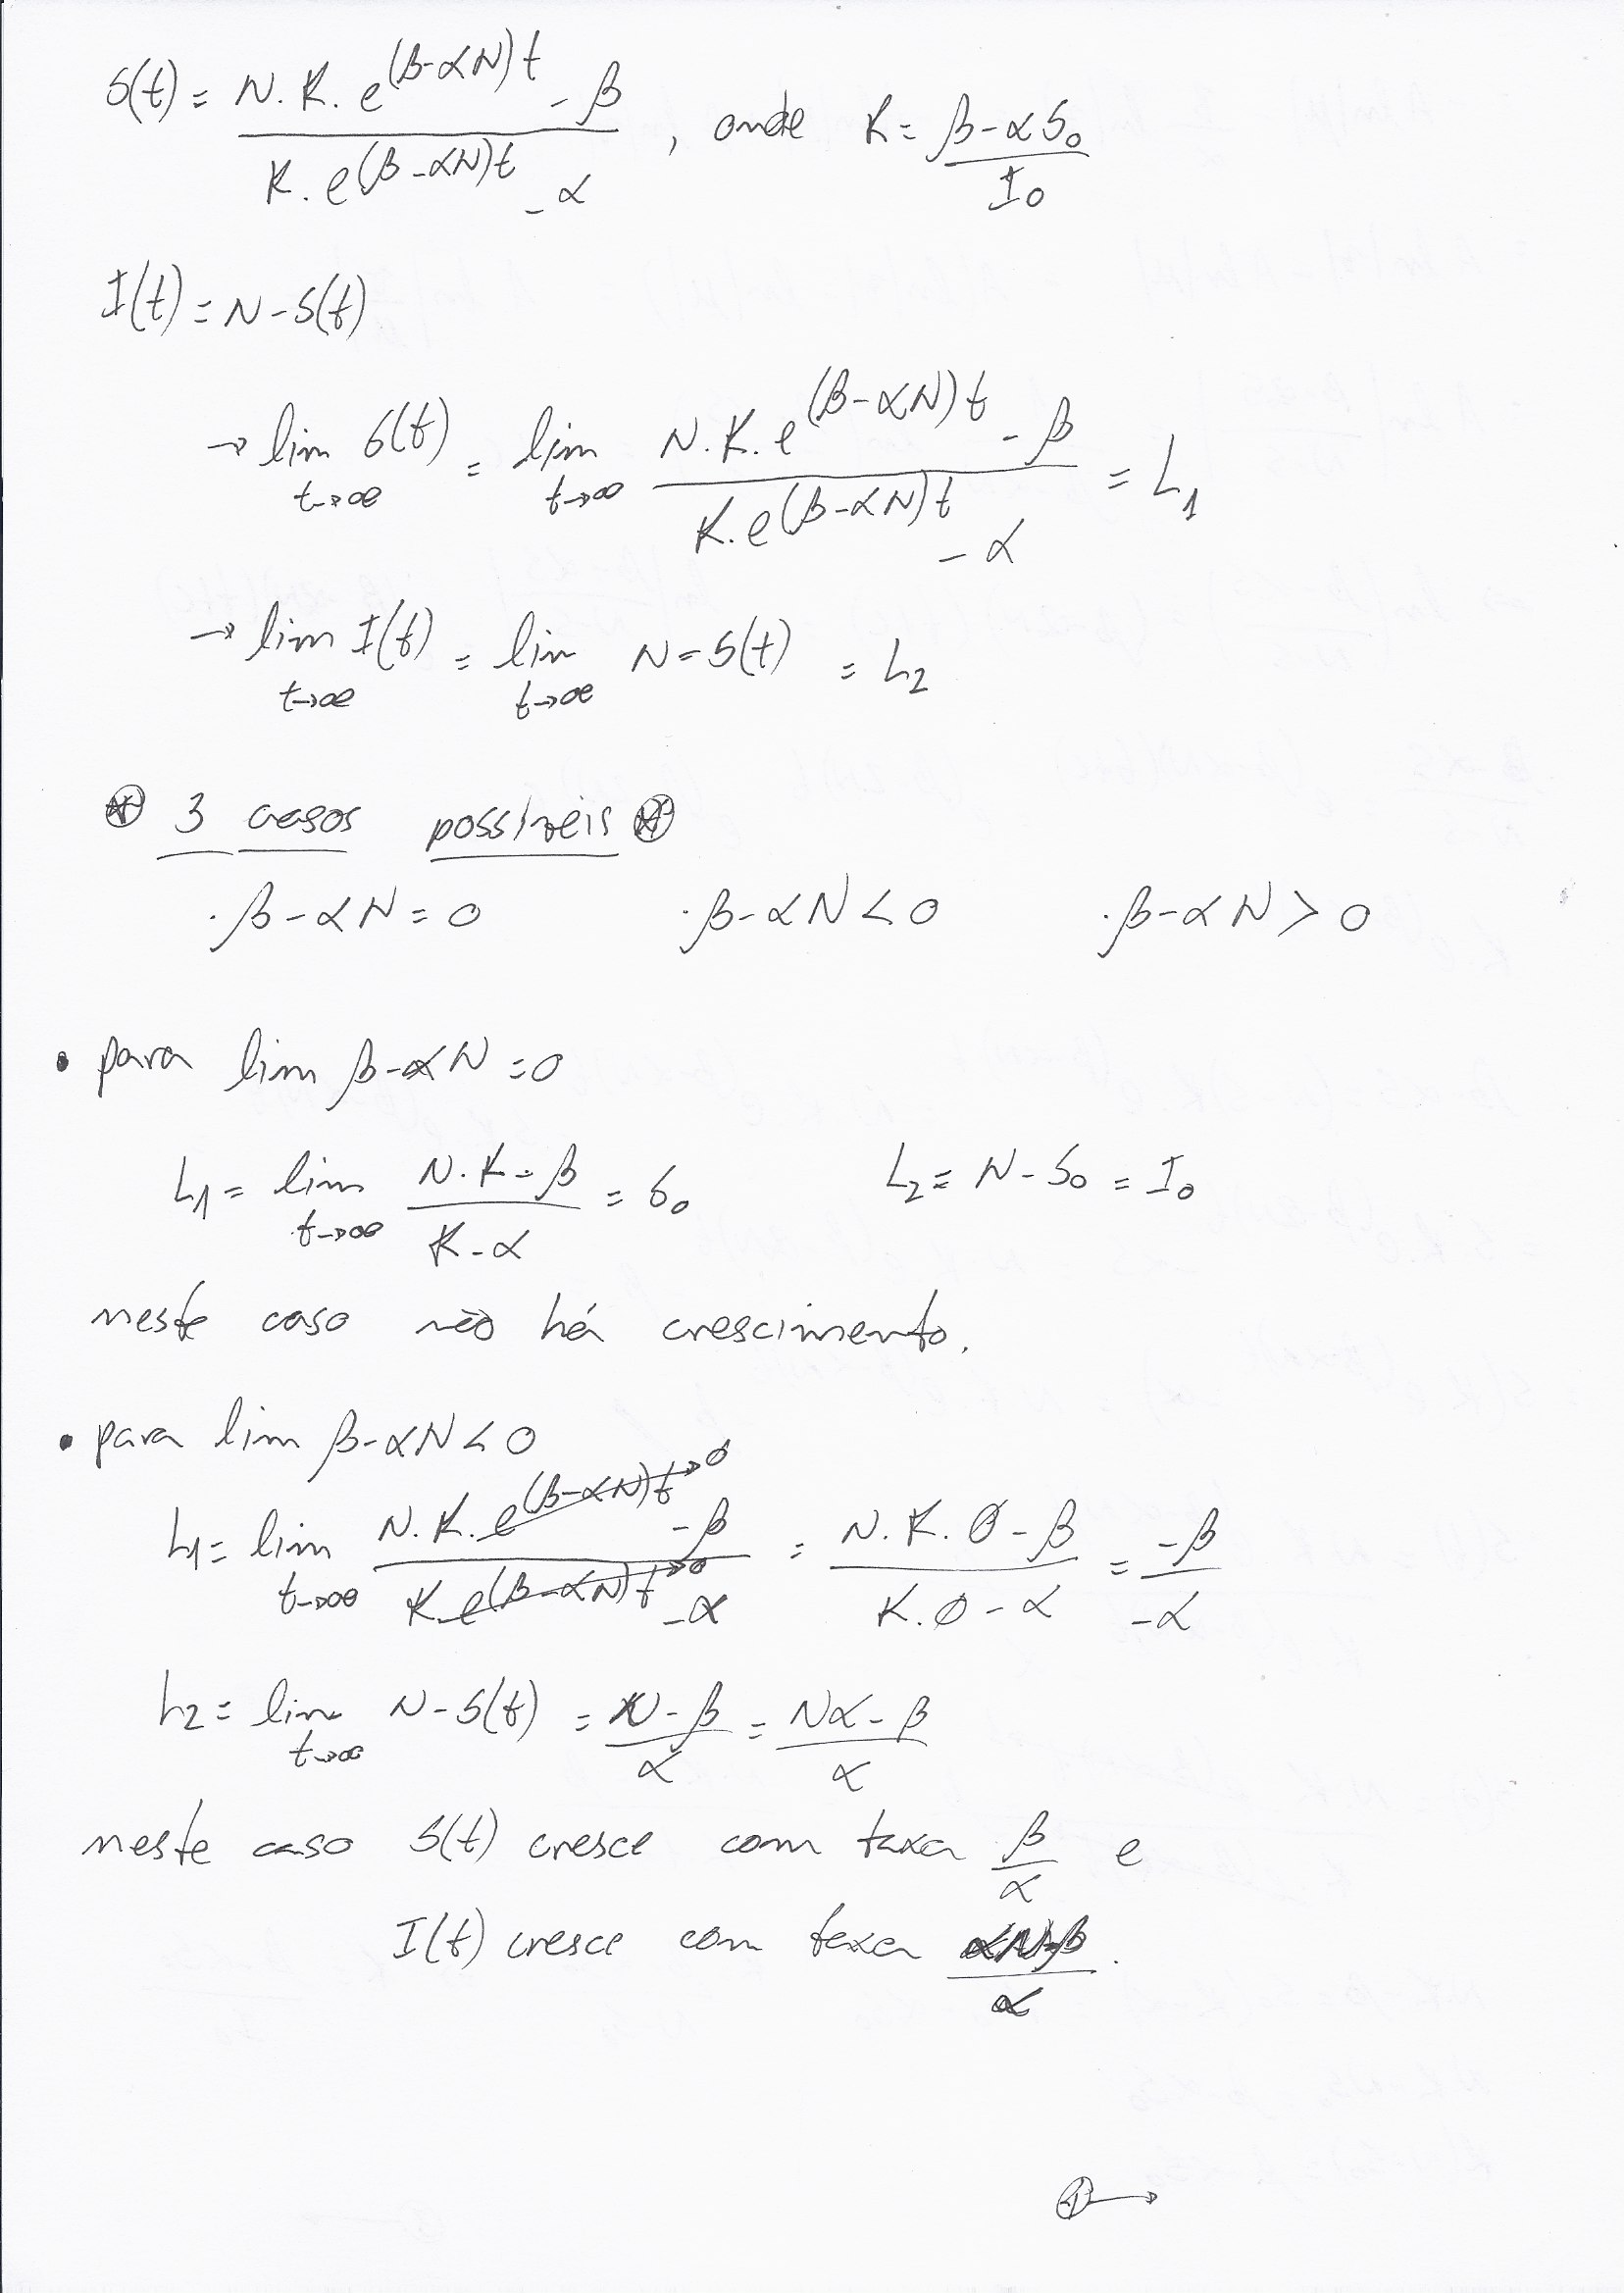 S(t) = N.K.e^(β-αN)t - β / K.e^(β-αN)t - α , onde K = β-αS₀ / I₀
I(t) = N-S(t)
→ lim t→∞ S(t) = lim t→∞ N.K.e^(β-αN)t - β / K.e^(β-αN)t - α = L₁
→ lim t→∞ I(t) = lim t→∞ N-S(t) = L₂
⊛ 3 casos possíveis ⊛
· β-αN = 0 · β-αN < 0 · β-αN > 0
• para lim β-αN = 0
L₁ = lim t→∞ N.K-β / K-α = S₀ L₂ = N-S₀ = I₀
neste caso não há crescimento.
• para lim β-αN < 0
L₁ = lim t→∞ N.K.e^(β-αN)t→0 - β / K.e^(β-αN)t→0 - α = N.K.0-β / K.0-α = -β / -α
L₂ = lim t→∞ N-S(t) = N-β / α = Nα-β / α
neste caso S(t) cresce com taxa β / α e
I(t) cresce com taxa αN-β / α .
① →